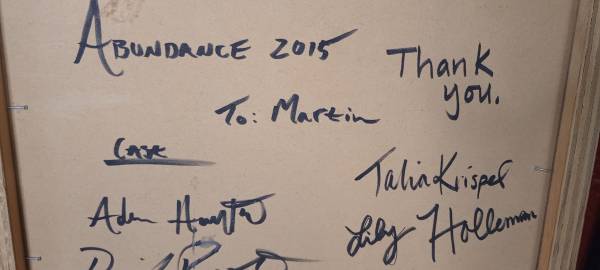 ABUNDANCE 2015
Thank
you.
To: Martin
Cast
Talia Krispel
Lily Holleman